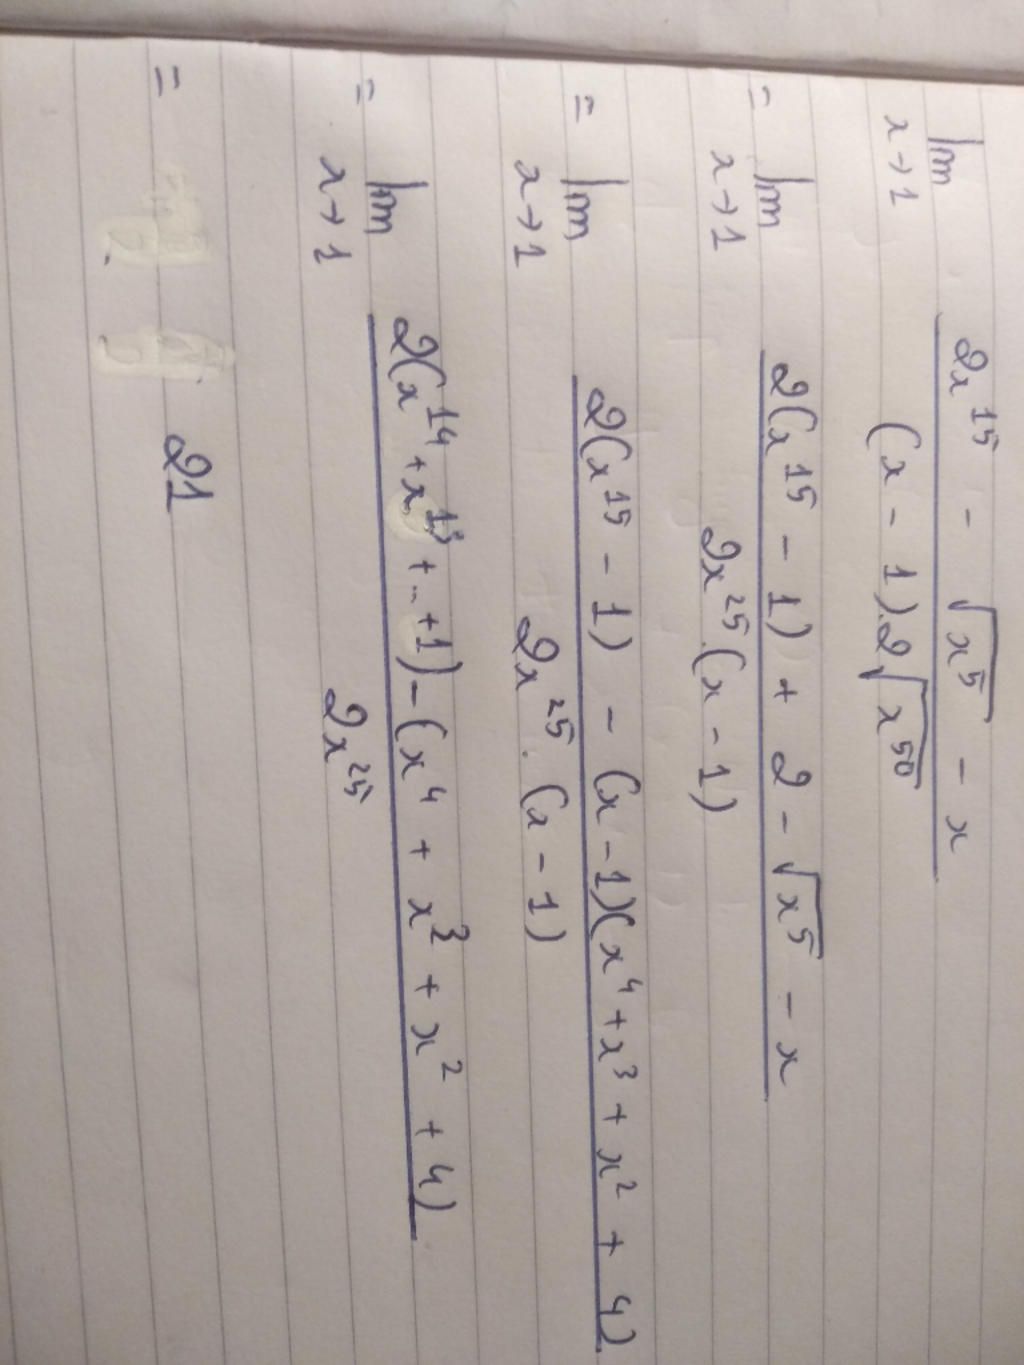 lim x→1 (2x^15 - √(x^5) - x) / ((x - 1).2√(x^50))
= lim x→1 (2(x^15 - 1) + 2 - √(x^5) - x) / (2x^25.(x - 1))
= lim x→1 (2(x^15 - 1) - (x - 1)(x^4 + x^3 + x^2 + 4)) / (2x^25.(x - 1))
= lim x→1 (2(x^14 + x^13 + ... + 1) - (x^4 + x^3 + x^2 + 4)) / (2x^25)
= 21